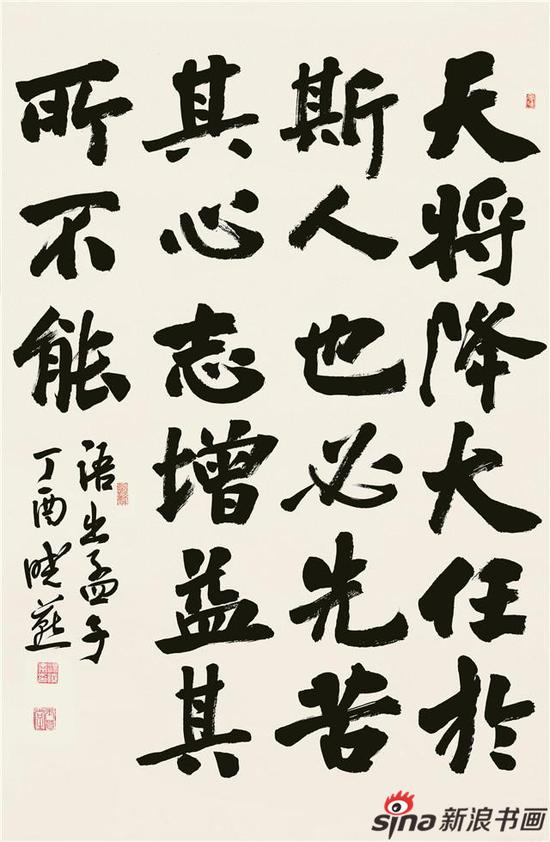 天将降大任於
斯人也必先苦
其心志增益其
所不能
语出孟子
丁酉晓燕
sina新浪书画